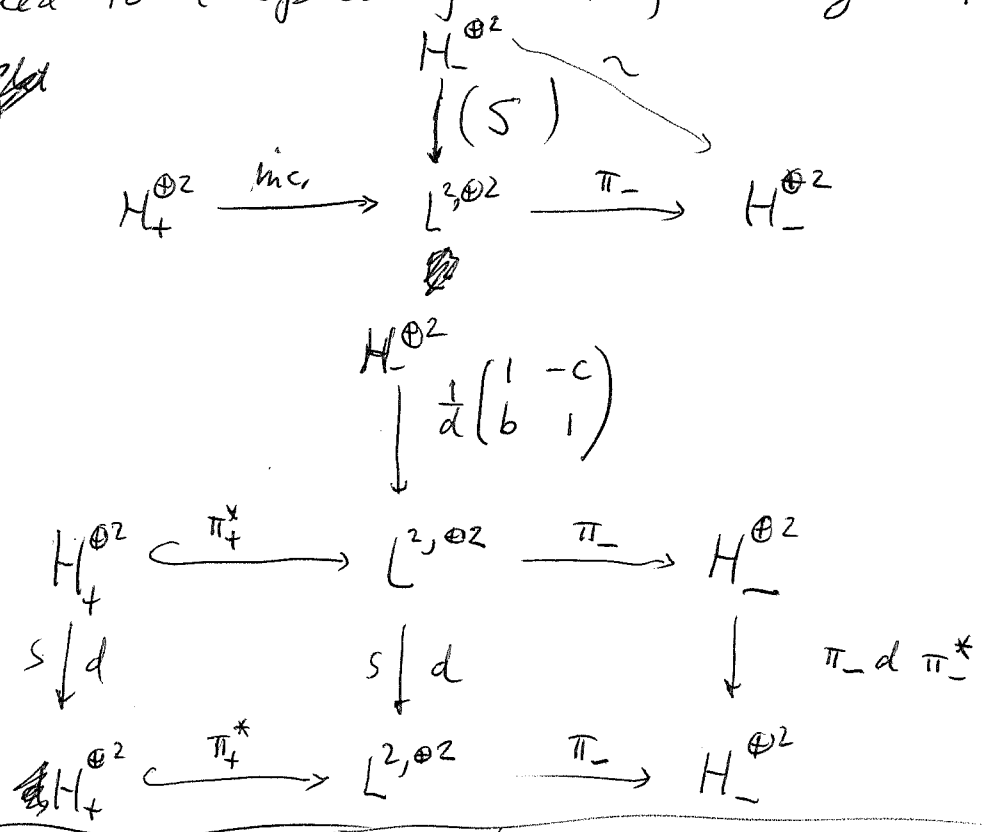 H_-^{⊕2}
∼
(S)
H_+^{⊕2} inc. L^{2,⊕2} π_- H_-^{⊕2}
H_-^{⊕2}
1/d (1 -c
b 1)
H_+^{⊕2} π_+^* L^{2,⊕2} π_- H_-^{⊕2}
S d S d π_- d π_-^*
H_+^{⊕2} π_+^* L^{2,⊕2} π_- H_-^{⊕2}